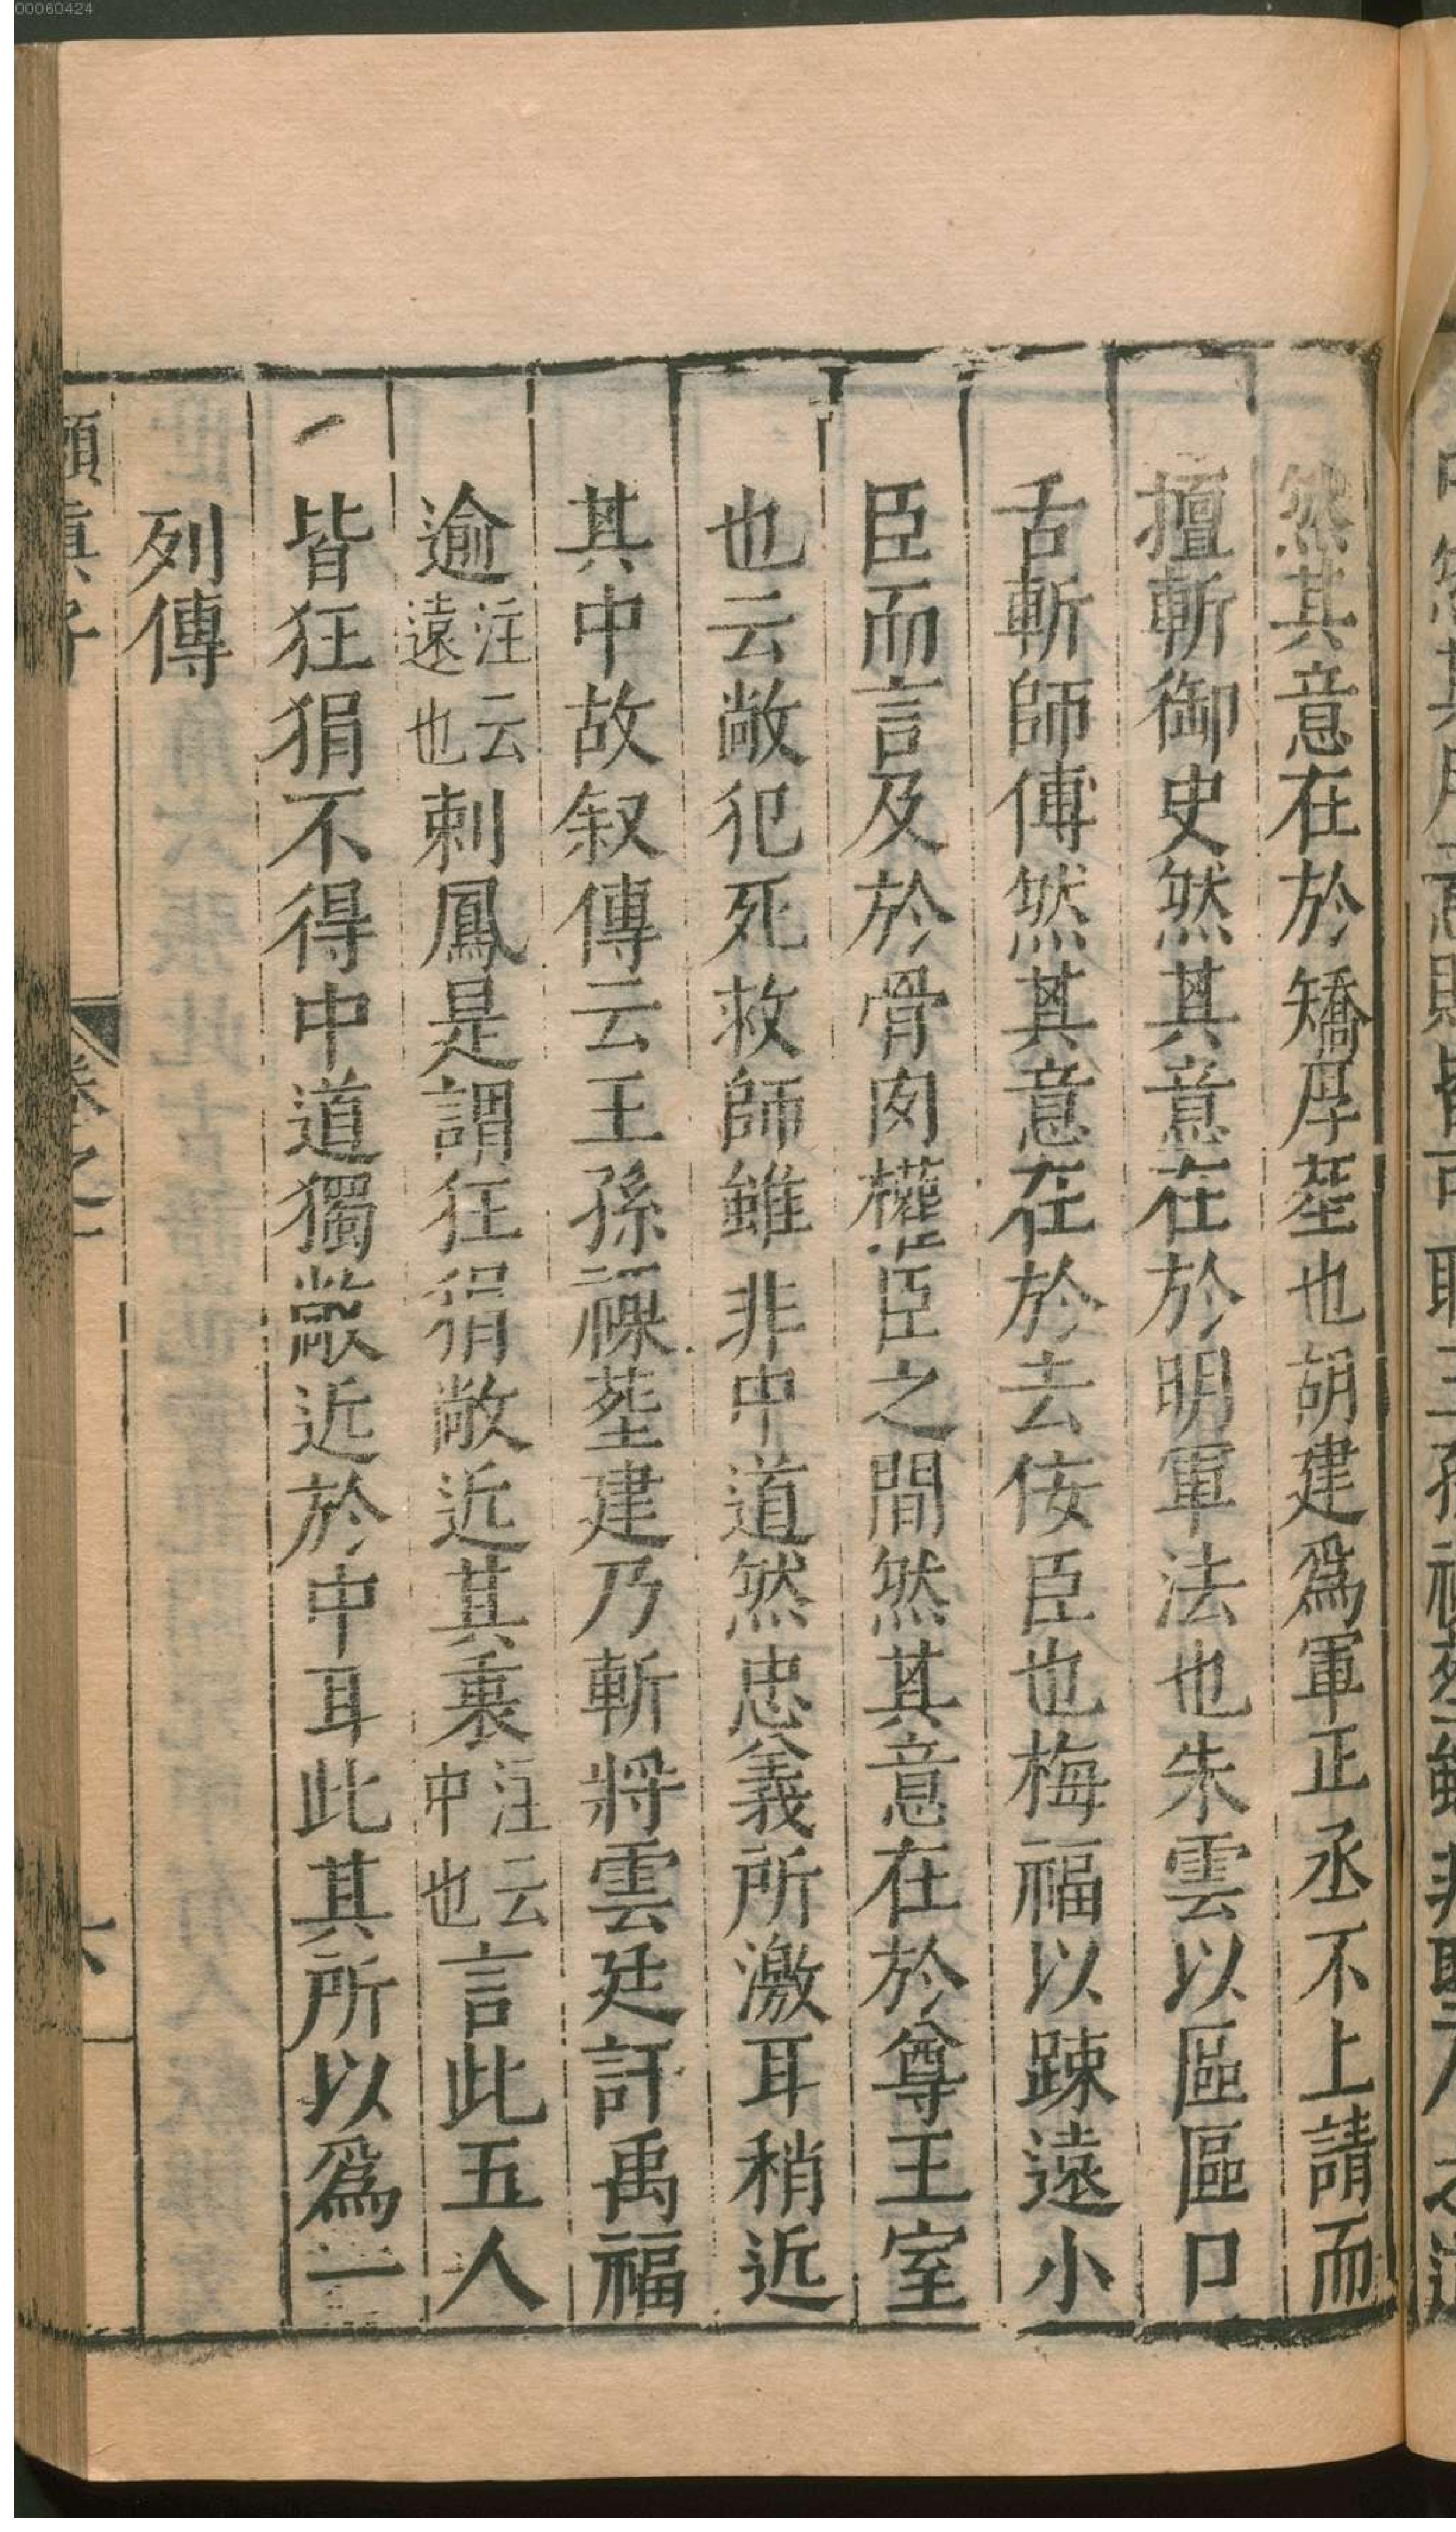 00060424
然其意在於矯厚塟也胡建爲軍正丞不上請而
擅斬御史然其意在於明軍法也朱雲以區區口
舌斬師傅然其意在於去佞臣也梅福以踈遠小
臣而言及於骨肉權臣之間然其意在於尊王室
也云敞犯死救師雖非中道然忠義所激耳稍近
其中故叙傳云王孫裸塟建乃斬將雲廷訐禹福
逾注云遠也刺鳳是謂狂狷敞近其衷注云中也言此五人
皆狂狷不得中道獨敞近於中耳此其所以爲一
列傳
卷之二
六